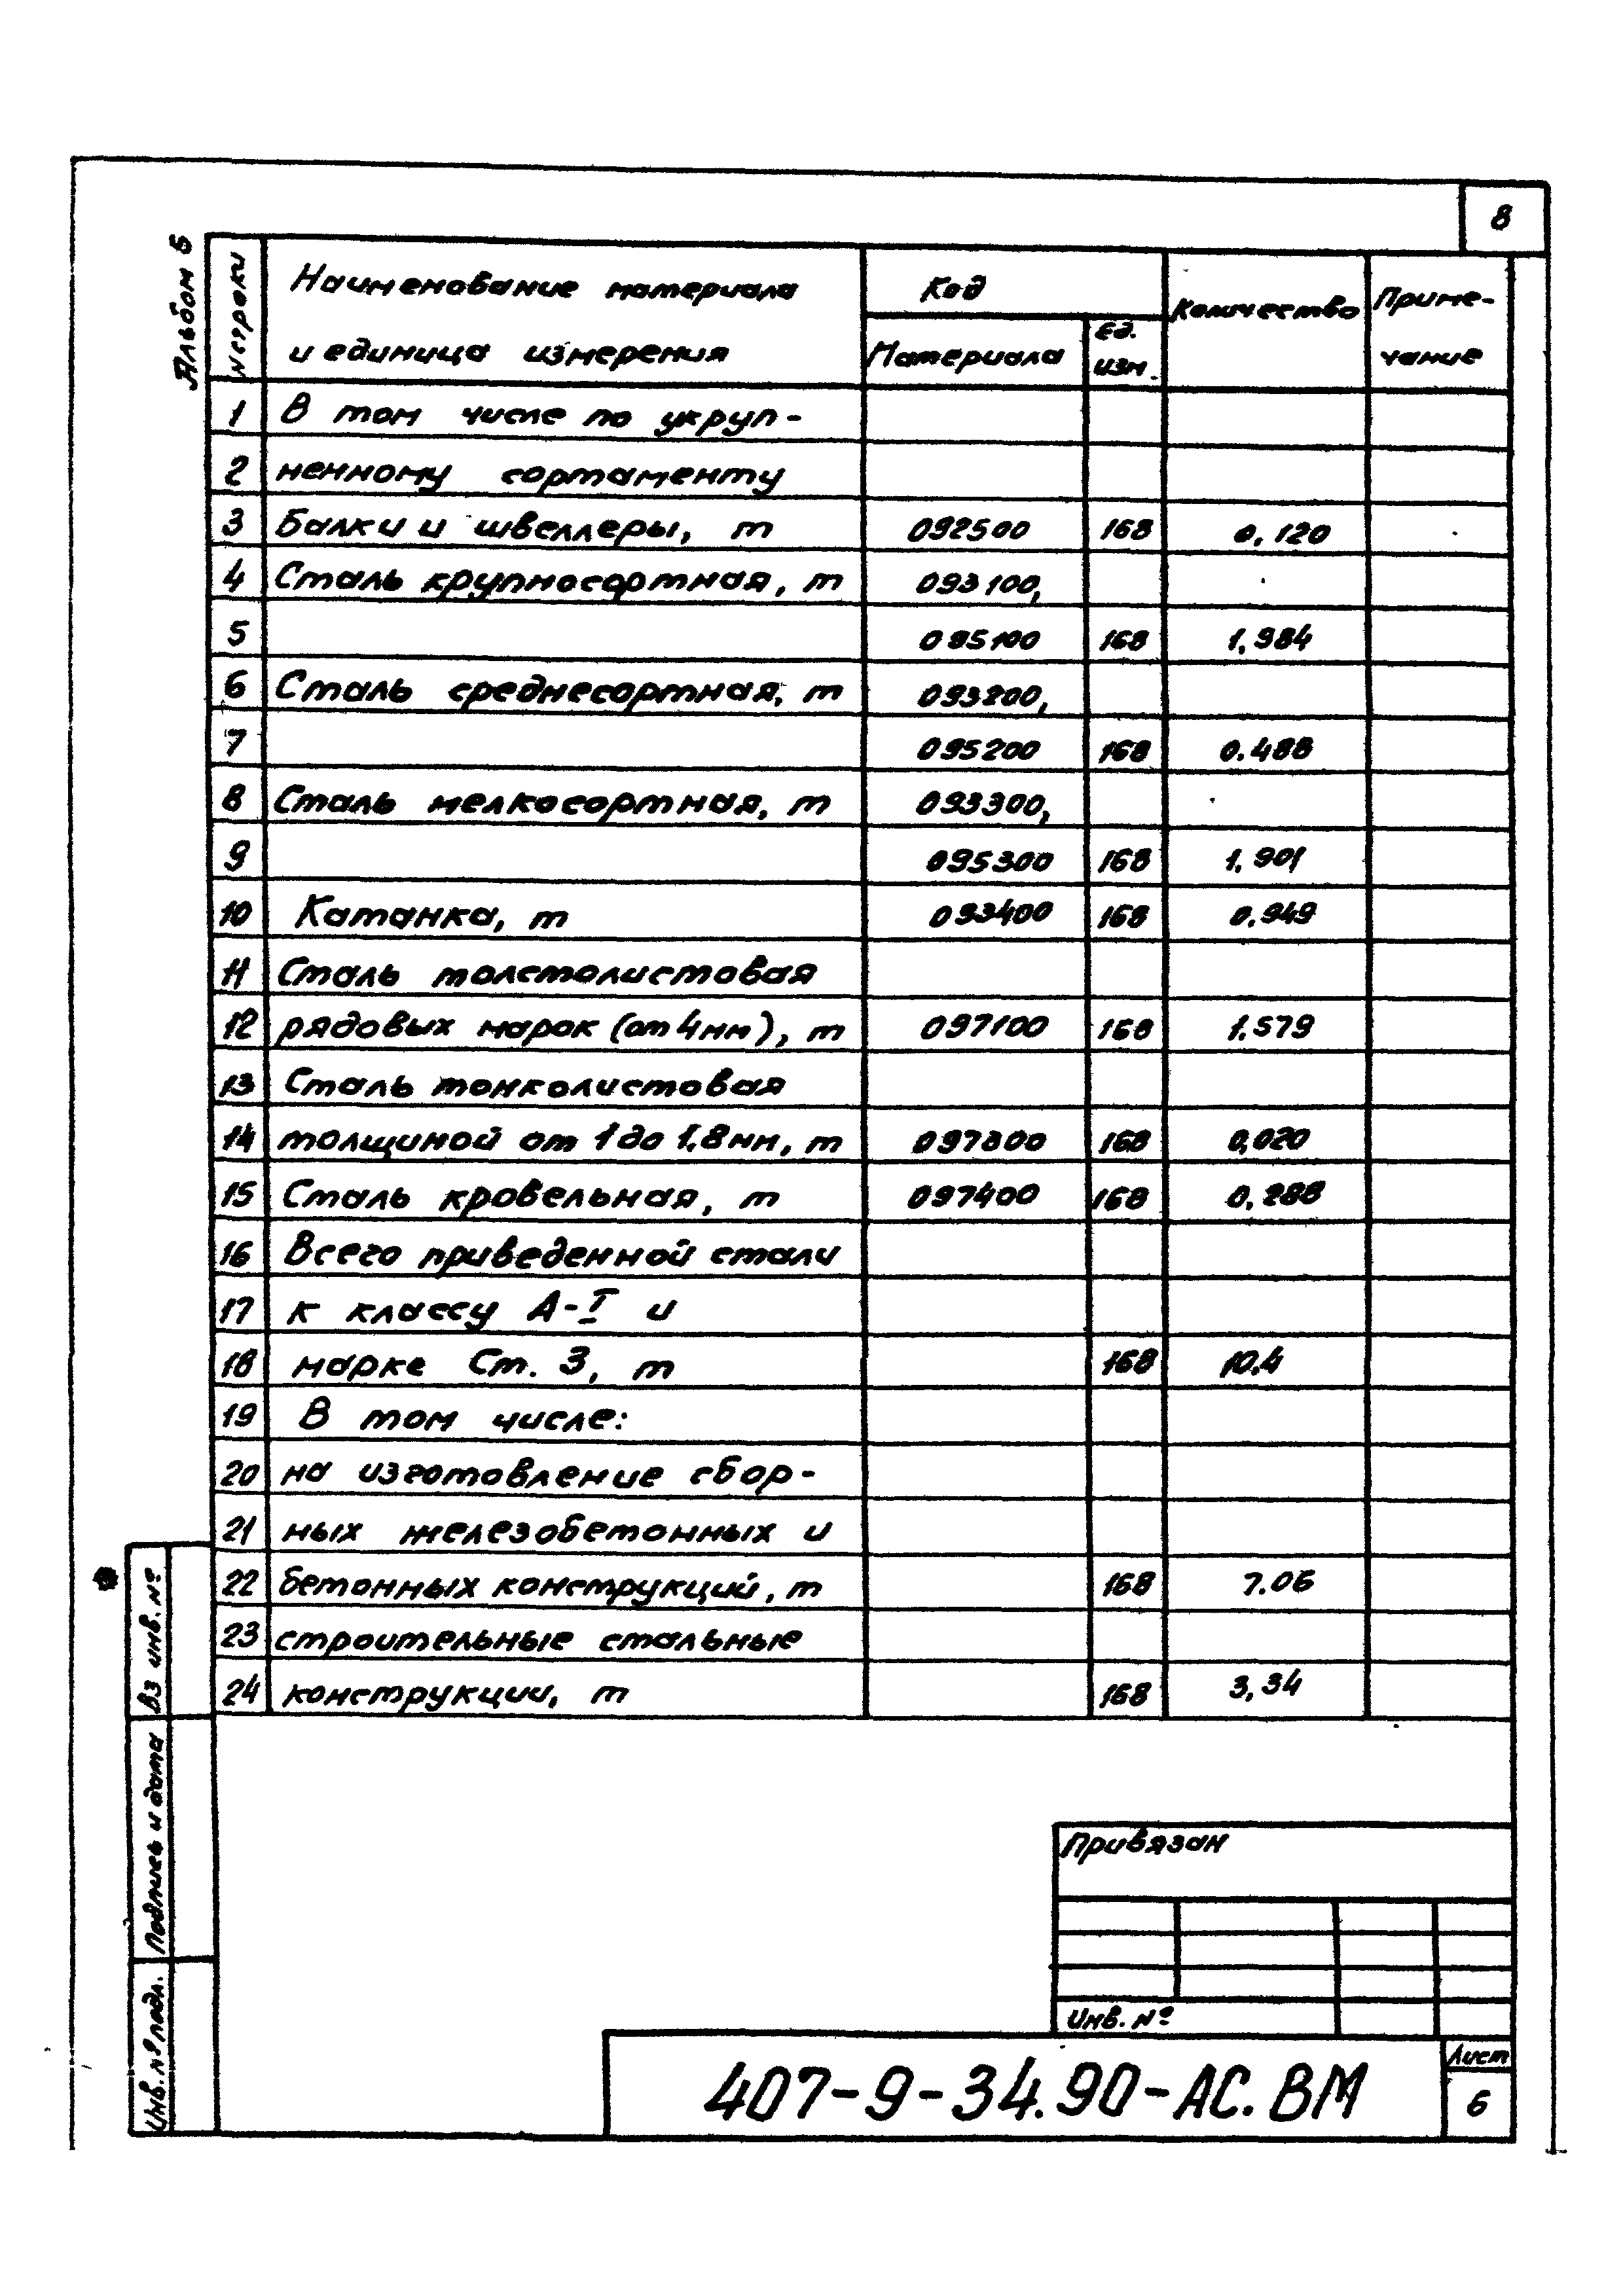 8
Альбом 5
№ строки
Наименование материала
и единица измерения
Код
Материала
Ед.
изм.
Количество
Приме-
чание
1 В том числе по укруп-
2 ненному сортаменту
3 Балки и швеллеры, т 092500 168 0,120
4 Сталь крупносортная, т 093100,
5 095100 168 1,984
6 Сталь среднесортная, т 093200,
7 095200 168 0.488
8 Сталь мелкосортная, т 093300,
9 095300 168 1,901
10 Катанка, т 093400 168 0,949
11 Сталь толстолистовая
12 рядовых марок (от 4мм), т 097100 168 1.579
13 Сталь тонколистовая
14 толщиной от 1 до 1,8мм, т 168 0,020
15 Сталь кровельная, т 097400 168 0,288
16 Всего приведенной стали
17 к классу А-I и
18 марке Ст. 3, т 168 10,4
19 В том числе:
20 на изготовление сбор-
21 ных железобетонных и
22 бетонных конструкций, т 168 7.06
23 строительные стальные
24 конструкции, т 168 3,34
Вз инв. №
Подпись и дата
Инв. № подл.
Привязан
Инв. №
407-9-34.90-АС.ВМ
Лист
6